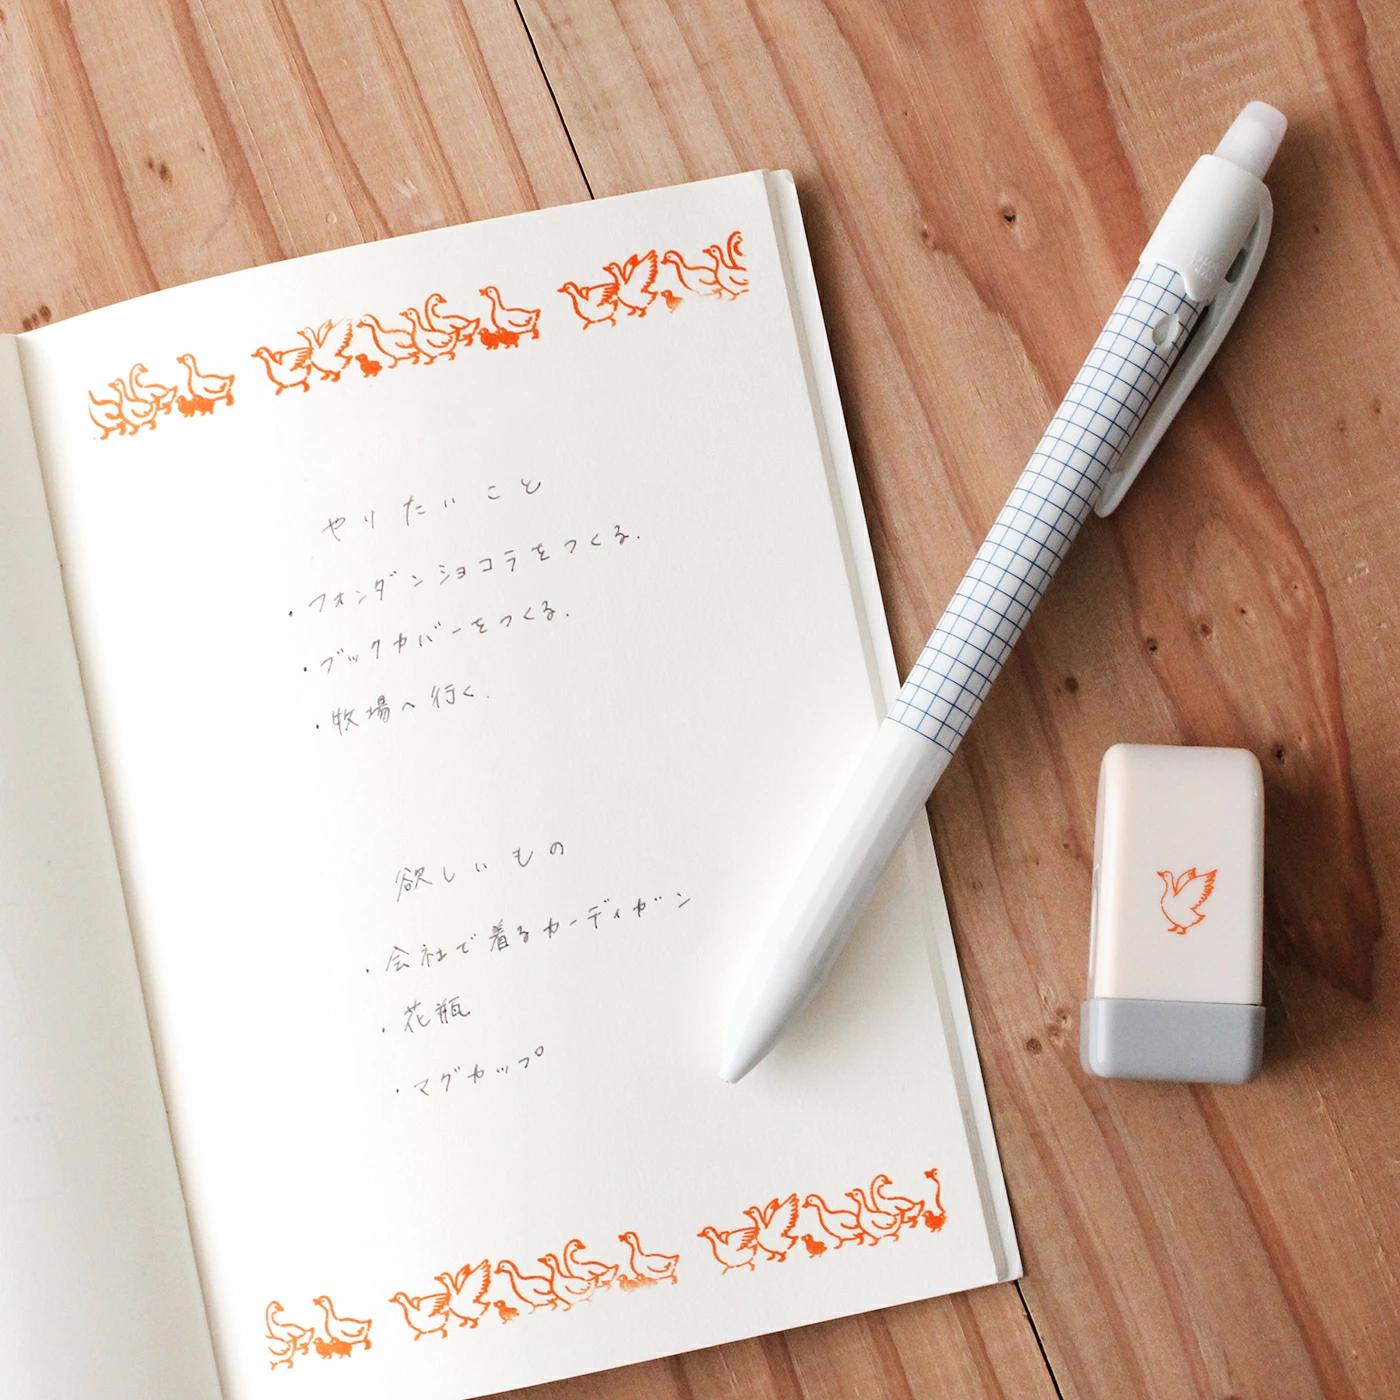 やりたいこと
・フォンダンショコラをつくる.
・ブックカバーをつくる.
・牧場へ行く.
欲しいもの
・会社で着るカーディガン
・花瓶
・マグカップ